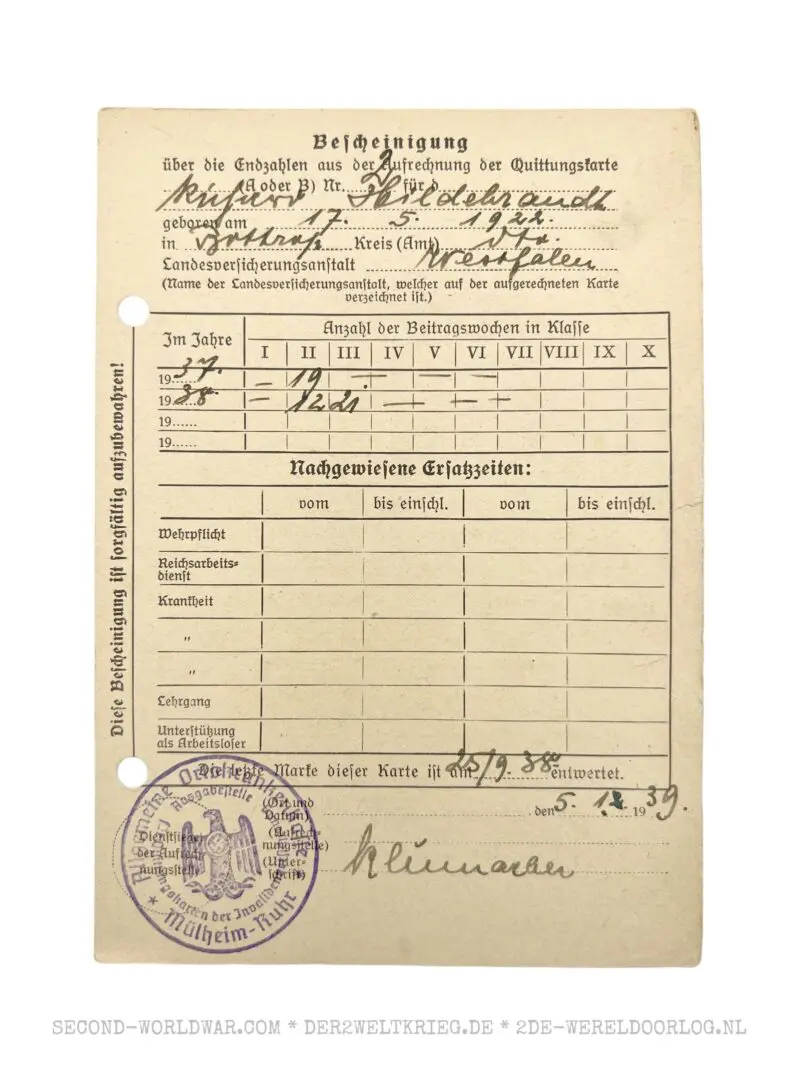 Bescheinigung
über die Endzahlen aus der Aufrechnung der Quittungskarte
(A oder B) Nr. 2 für d
Hildebrandt
geboren am 17. 5. 1922.
in Bottrop Kreis (Amt) dto.
Landesversicherungsanstalt Westfalen
(Name der Landesversicherungsanstalt, welcher auf der aufgerechneten Karte
verzeichnet ist.)
Im Jahre
Anzahl der Beitragswochen in Klasse
I II III IV V VI VII VIII IX X
1937. — 19 — — —
1938. — 12 21 — — —
19......
19......
Nachgewiesene Ersatzzeiten:
vom bis einschl. vom bis einschl.
Wehrpflicht
Reichsarbeits-
dienst
Krankheit
"
"
Lehrgang
Unterstützung
als Arbeitsloser
Die letzte Marke dieser Karte ist am 25/9. 38. entwertet.
(Ort und
Datum)
den 5. 12 1939.
(Aufrech-
nungsstelle)
(Unter-
schrift)
Dienstsiegel
der Aufrech-
nungsstelle
Allgemeine Ortskrankenkasse
Ausgabestelle
der Invaliden
* Mülheim-Ruhr *
Diese Bescheinigung ist sorgfältig aufzubewahren!
SECOND-WORLDWAR.COM * DER2WELTKRIEG.DE * 2DE-WERELDOORLOG.NL